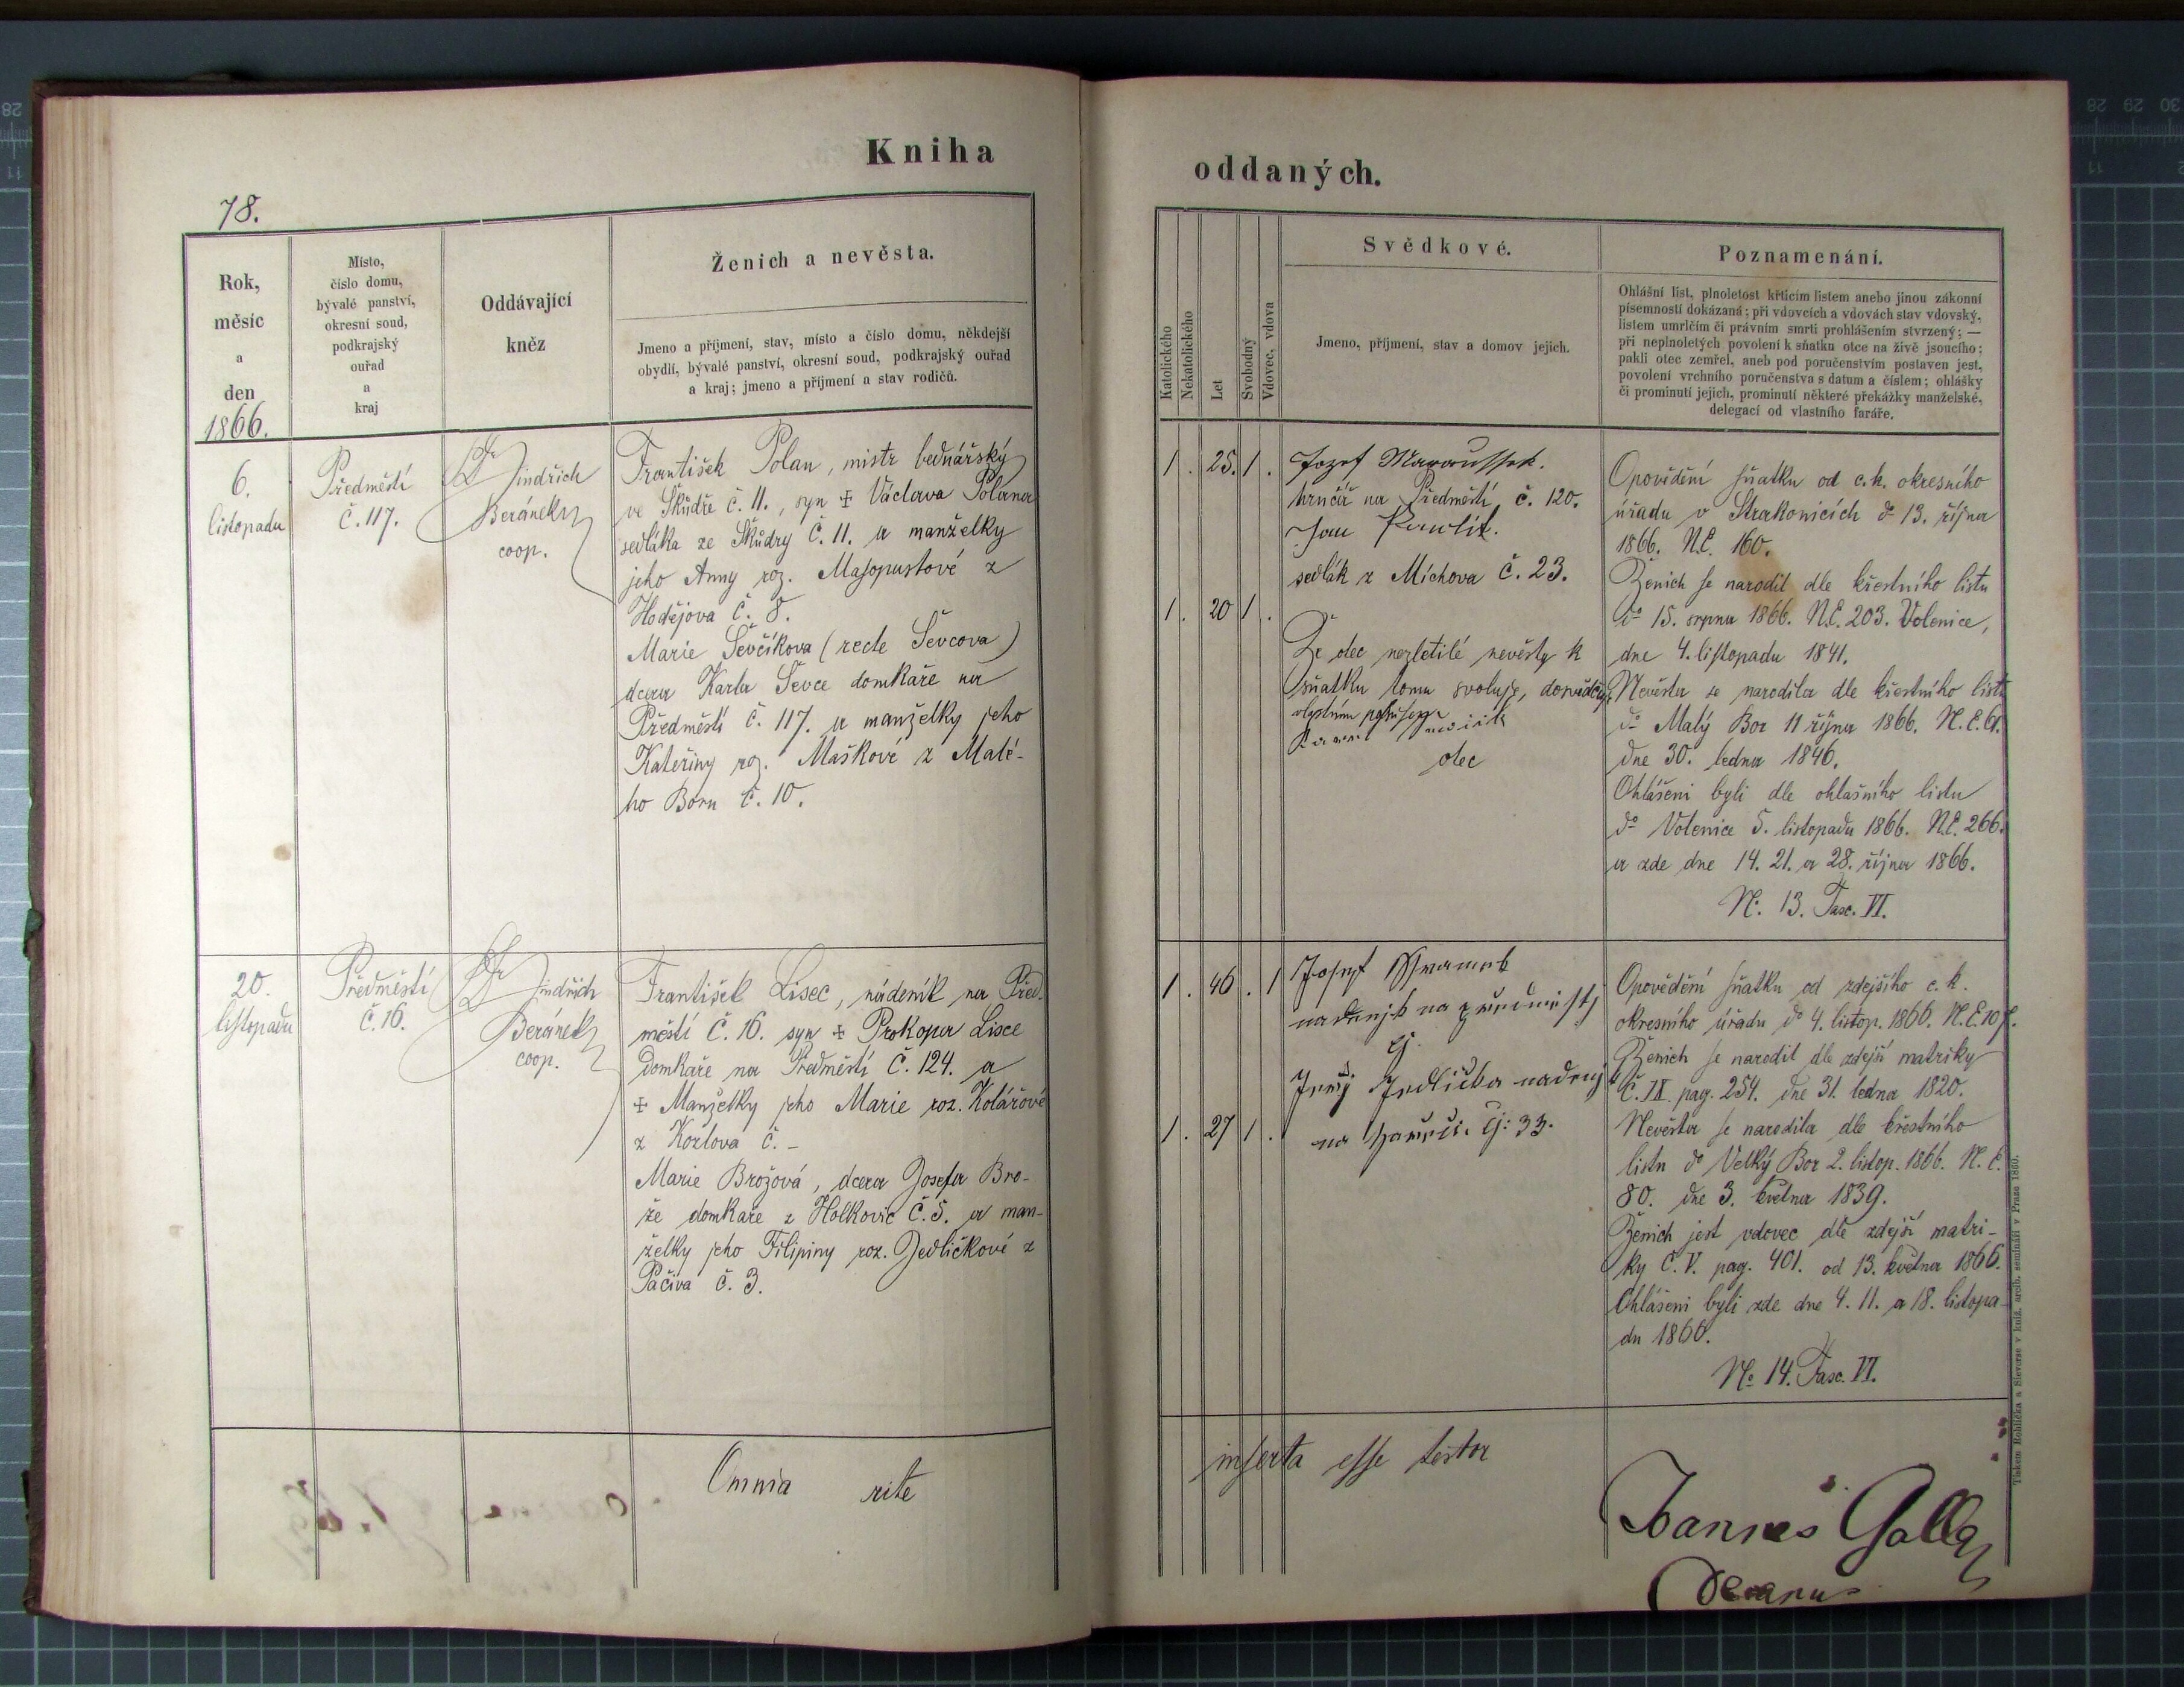 Kniha
oddaných.
78.
Rok,
měsíc
a
den
1866.
Místo,
číslo domu,
bývalé panství,
okresní soud,
podkrajský
ouřad
a
kraj
Oddávající
kněz
Ženich a nevěsta.
Jmeno a příjmení, stav, místo a číslo domu, někdejší
obydlí, bývalé panství, okresní soud, podkrajský ouřad
a kraj; jmeno a příjmení a stav rodičů.
Katolického
Nekatolického
Let
Svobodný
Vdovec, vdova
Svědkové.
Jmeno, příjmení, stav a domov jejich.
Poznamenání.
Ohlášní list, plnoletost křticím listem anebo jinou zákonní
písemností dokázaná; při vdovcích a vdovách stav vdovský,
listem umrlčím či právním smrti prohlášením stvrzený; —
při neplnoletých povolení k sňatku otce na živě jsoucího;
pakli otec zemřel, aneb pod poručenstvím postaven jest,
povolení vrchního poručenstva s datum a číslem; ohlášky
či prominutí jejich, prominutí některé překážky manželské,
delegací od vlastního faráře.
6.
listopadu
Předměstí
č. 117.
Jindřich
Beránek
coop.
František Polan, mistr bednářský
ve Škůdře č. 11., syn + Václava Polana
sedláka ze Škůdry č. 11. a manželky
jeho Anny roz. Masopustové z
Hodějova č. 8.
Marie Ševčíkova (recte Ševcova)
dcera Karla Ševce domkaře na
Předměstí č. 117. a manželky jeho
Kateřiny roz. Maškové z Malé-
ho Boru č. 10.
1. 25. 1.
1. 20 1.
Jozef
hrnčíř na Předměstí č. 120.
Jan
sedlák z Míchova č. 23.
Že otec nezletilé nevěsty k
sňatku tomu svoluje, dosvědčuje
vlastním
otec
Opovědění sňatku od c. k. okresního
úřadu v Strakonicích do 13. října
1866. N.E. 160.
Ženich se narodil dle křestního listu
do 15. srpna 1866. N.E. 203. Volenice,
dne 4. listopadu 1841.
Nevěsta se narodila dle křestního listu
do Malý Bor 11 října 1866. N.E. 61.
dne 30. ledna 1846.
Ohlášeni byli dle ohlašního listu
do Volenice 5. listopadu 1866. N.E. 266.
a zde dne 14. 21. a 28. října 1866.
N. 13. Fasc. VI.
20.
listopadu
Předměstí
č. 16.
Jindřich
Beránek
coop.
František Lisec, nádeník na Před-
městí č. 16. syn + Prokopa Lisce
domkaře na Předměstí č. 124. a
+ Manželky jeho Marie roz. Kolářové
z Kozlova č. -
Marie Brožová, dcera Josefa Bro-
že domkaře z Holkovic č. 5. a man-
želky jeho Filipiny roz. Jedličkové z
Pačiva č. 3.
1. 46. 1
1. 27 1.
Josef
na
Jedlička
na 33.
Opovědění sňatku od zdejšího c. k.
okresního úřadu do 4. listop. 1866. N.E.
Ženich se narodil dle zdejší matriky
pag. 254. dne 31. ledna 1820.
Nevěsta se narodila dle křestního
listu do Velký Bor 2. listop. 1866. N.E.
80. dne 3. května 1839.
Ženich jest vdovec dle zdejší matri-
ky Č. V. pag. 401. od 13. května 1866.
Ohlášeni byli zde dne 4. 11. a 18. listopa-
du 1866.
No 14. Fasc. VI.
Omnia rite
inserta esse testor
Joannes Galla
Decanus